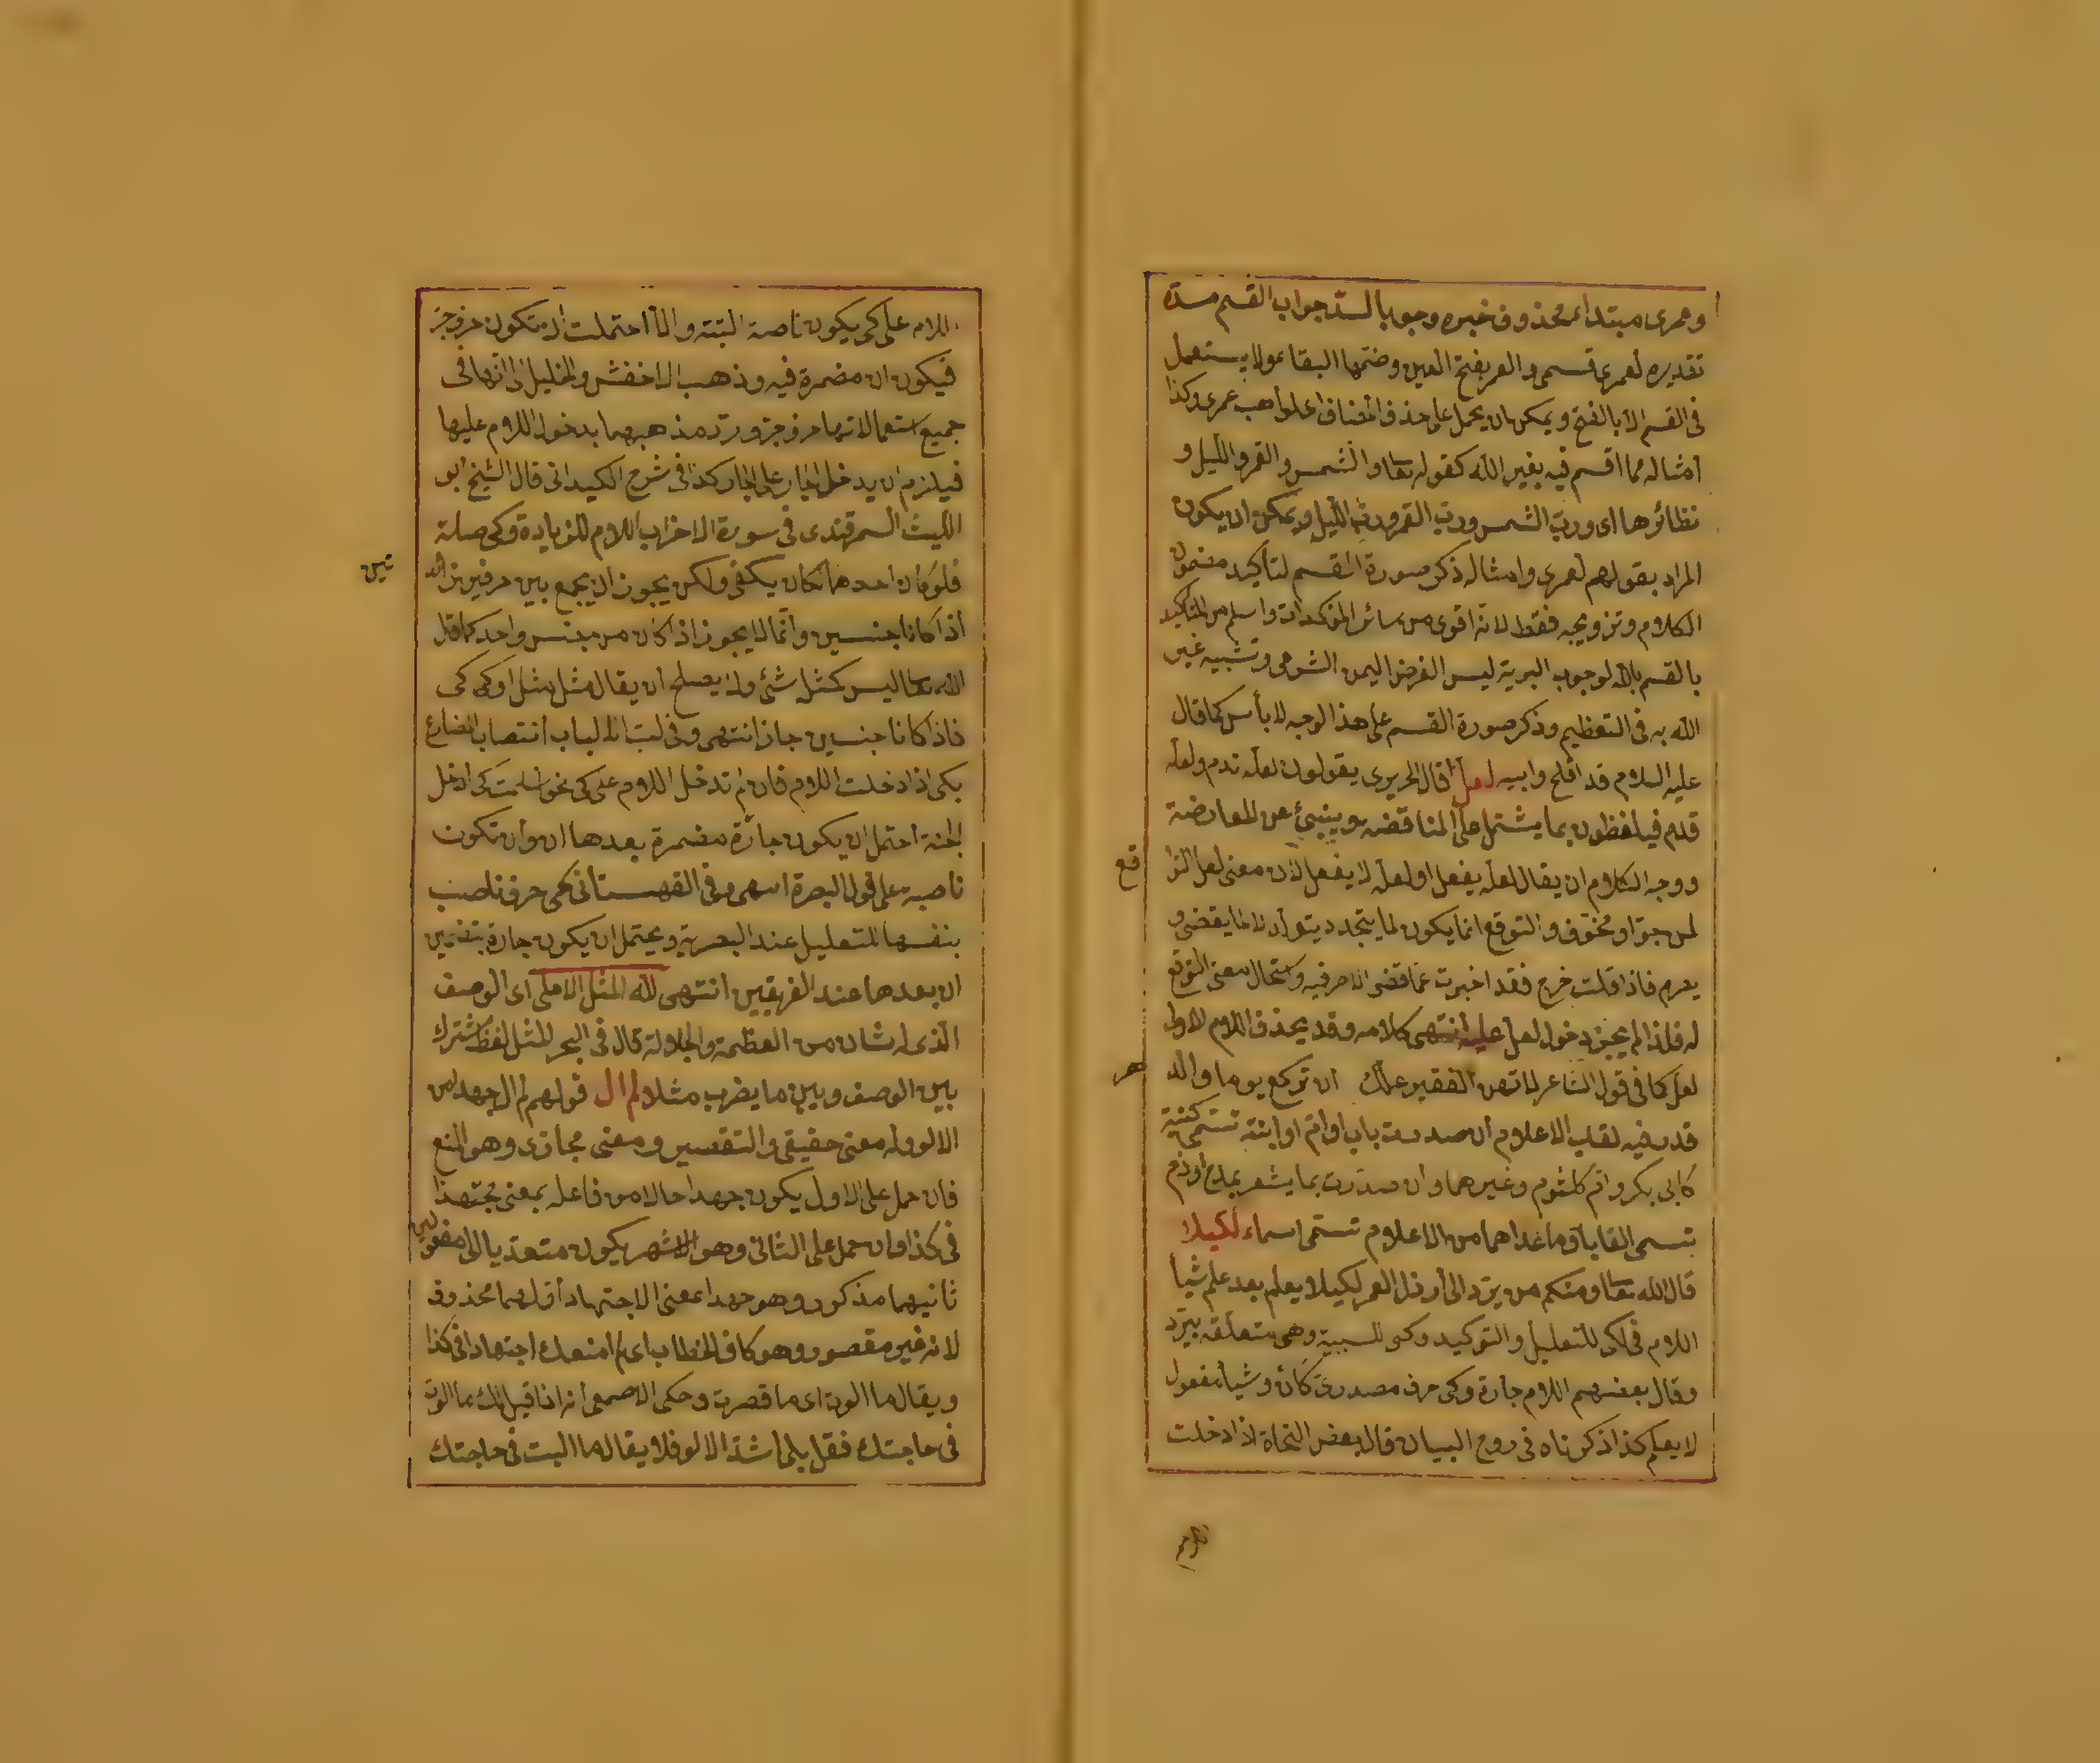 وعمرى مبتداء محذوف خبره وجوبا لسد جواب القسم مسده
تقديره لعمرى قسمى والعمر بفتح العين وضمها البقاء ولا يستعمل
فى القسم الا بالفتح ويمكن ان يحمل على حذف المضاف اى لواهب عمرى وكذا
امثاله مما اقسم فيه بغير الله كقوله تعا والشمس والقمر والليل و
نظائرها اى ورب الشمس ورب القمر ورب الليل ويمكن ان يكون
المراد بقولهم لعمرى وامثاله ذكر صورة القسم لتأكيد مضمون
الكلام وترويجه فقط لانه اقوى من سائر المؤكدات واسلم من التأكيد
بالقسم بالله لوجوب البر به ليس الغرض اليمن الشرعى وتشبيه غير
الله به فى التعظيم وذكر صورة القسم على هذا الوجه لا بأس كما قال
عليه السلام قد افلح وابيه لعل قال الحريرى يقولون لعله ندم ولعله
قدم فيلفظون بما يشتمل على المناقضة وينبئ عن المعارضة
ووجه الكلام ان يقال لعله يفعل او لعله لا يفعل لان معنى لعل التو
قع
لمرجو او مخوف والتوقع انما يكون لما يتجدد ويتولد لا لما يقضى و
يصرم فاذا قلت خرج فقد اخبرت عما قضى الامر فيه واستحال معنى التوقع
له فلذا لم يجز دخول لعل عليه انتهى كلامه وقد يحذف اللام الاولى
لعل كما فى قول الشاعر لا تهن الفقير علك ان تركع يوما والد
هر
قد رفعه لقب الاعلام ان صدرت باب او ام او ابنة تسمى كنية
كابى بكر وام كلثوم وغيرهما وان صدرت بما يشعر بمدح او ذم
تسمى القابا وما عداهما من الاعلام تسمى اسماء لكيلا
قال الله تعا ومنكم من يرد الى أرذل العمر لكيلا يعلم بعد علم شيأ
اللام فى لكى للتعليل والتوكيد وكى للسببية وهى متعلقة بيرد
وقال بعضهم اللام جارة وكى حرف مصدرى كأن وشيأ مفعول
لا يعلم كذا ذكرناه فى روح البيان قال بعض النحاة اذا دخلت
اللام على كى يكون ناصبة البتة والا احتملت ان تكون حرف جر
فيكون ان مضمرة فيه وذهب الاخفش والخليل الى انها فى
جميع استعمالاتها حرف جر ورد مذهبهما بدخول اللام عليها
فيلزم ان يدخل الجار على الجار كذا فى شرح الكيدانى قال الشيخ ابو
الليث السمرقندى فى سورة الاحزاب اللام للزيادة وكى صلة
فلو كان احدهما لكان يكفى ولكن يجوز ان يجمع بين حرفين زائد
تين
اذا كانا جنسين وانما لا يجوز اذا كان من جنس واحد كما قال
الله تعا ليس كمثله شئ ولا يصلح ان يقال مثل مثل او كى كى
فاذا كانا جنسين جاز انتهى وفى لب الالباب انتصاب المضارع
بكى اذا دخلت اللام فان لم تدخل اللام على كى نحو اسلمت كى ادخل
الجنة احتمل ان يكون جارة مضمرة بعدها ان وان تكون
ناصبة على قول البصرة انتهى وفى القهستانى كى حرف ناصب
بنفسها للتعليل عند البصرية ويحتمل ان يكون جارة بتضمين
ان بعدها عند الفريقين انتهى لله المثل الاعلى اى الوصف
الذى له شان من العظمة والجلالة قال فى البحر للمثل لفظ مشترك
بين الوصف وبين ما يضرب مثلا لم ال قولهم لم ال جهدا من
الالو وله معنى حقيقى والتقصير ومعنى مجازى وهو المنع
فان حمل على الاول يكون جهدا حالا من فاعله بمعنى مجتهدا
فى كذا وان حمل على الثانى وهو الاشهر يكون متعديا الى مفعولين
ثانيهما مذكور وهو جهدا بمعنى الاجتهاد أولهما محذوف
لانه غير مقصور وهو كاف الخطاب اى لم امنعك اجتهادا فى كذا
ويقال ما الوت اى ما قصرت وحكى الاصمعى انه اذا قيل لك ما الوت
فى حاجتك فقل بلى اشد الالو فلا يقال ما اليت فى حاجتك